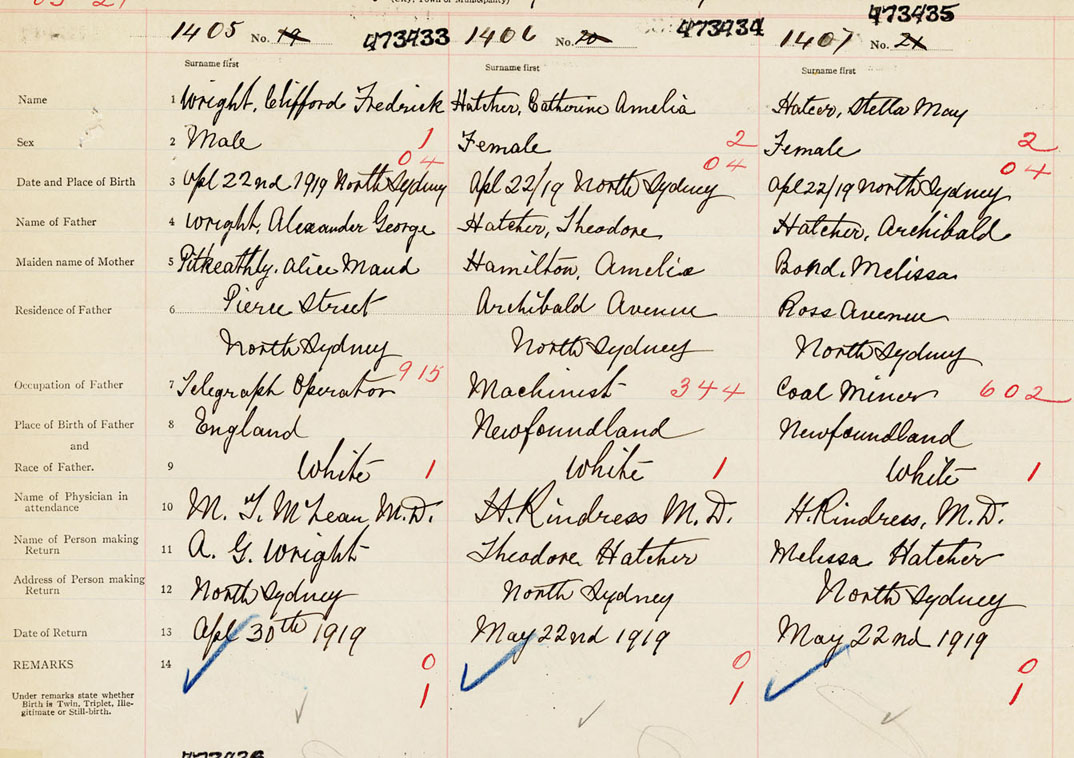 (City, Town or Municipality)
1405 No. 19 473433 1406 No. 20 473434 1407 No. 21 473435
Surname first Surname first Surname first
Name 1 Wright, Clifford Fredrick Hatcher, Catherine Amelia Hatcer, Stella May
Sex 2 Male 1 Female 2 Female 2
04 04 04
Date and Place of Birth 3 Apl 22nd 1919 North Sydney Apl 22/19 North Sydney Apl 22/19 North Sydney
Name of Father 4 Wright, Alexander George Hatcher, Theodore Hatcher, Archibald
Maiden name of Mother 5 Pitkeathly, Alice Maud Hamilton, Amelia Bond, Melissa
Residence of Father 6 Pierce Street Archibald Avenue Ross Avenue
North Sydney North Sydney North Sydney
Occupation of Father 7 Telegraph Operator 915 Machinist 344 Coal Miner 602
Place of Birth of Father 8 England Newfoundland Newfoundland
and
Race of Father. 9 White 1 White 1 White 1
Name of Physician in
attendance 10 M. T. McLean, M.D. H. Rindress M.D. H. Rindress, M.D.
Name of Person making
Return 11 A. G. Wright Theodore Hatcher Melissa Hatcher
Address of Person making
Return 12 North Sydney North Sydney North Sydney
Date of Return 13 Apl 30th 1919 May 22nd 1919 May 22nd 1919
REMARKS 14 0 0 0
Under remarks state whether
Birth is Twin, Triplet, Ille-
gitimate or Still-birth. 1 1 1